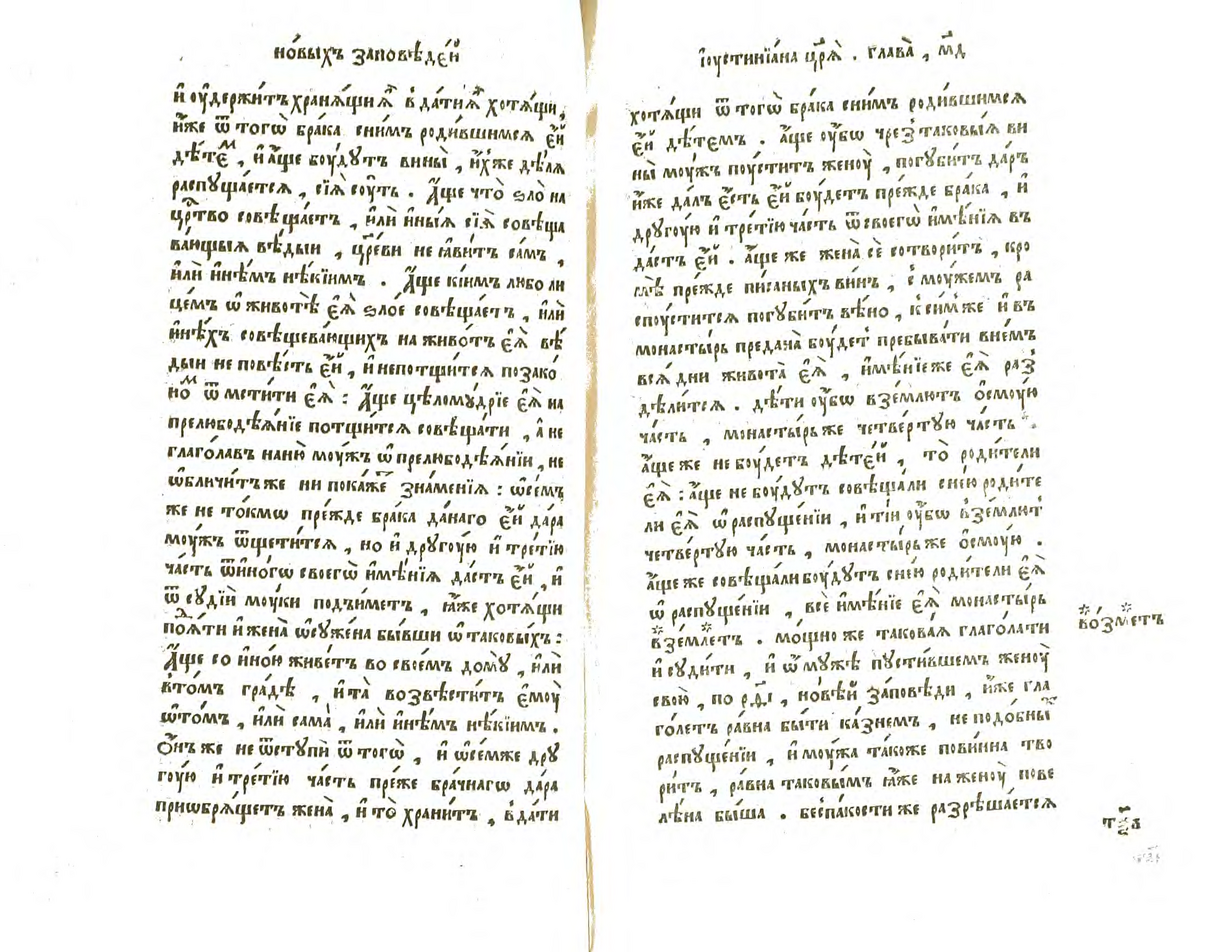 но́выхъ заповѣде́й
и҆ ѹ҆держи́тъ храня́щи ѧ҆̀ в̾да́ти ѧ҆̀ хотѧ́щи,
и҆́же ѿ того̀ бра́ка сни́мъ роди́вшимсѧ є҆́й
дѣ́темⷨ, и҆ а҆́ще бꙋ́дꙋтъ вины̀, и҆́хже дѣ́лѧ
распꙋща́етсѧ, сїѧ̀ сꙋ́ть. А҆́ще что̀ ѕло̀ на
црⷭ҇тво совѣща́етъ, и҆лѝ и҆ны́ѧ сїѧ̀ совѣща
ва́ющыѧ вѣ́дыи, цр҃еви не ꙗ҆ви́тъ са́мъ,
и҆лѝ и҆нѣ́мъ нѣ́кїимъ. А҆́ще кіи́мъ любо ли
це́мъ ѡ҆ животѣ̀ є҆ѧ̀ ѕло́е совѣща́етъ, и҆лѝ
и҆нѣ́хъ совѣщева́ющихъ на живо́тъ є҆ѧ̀ вѣ́
дыи не повѣ́сть є҆́й, и҆ непотщи́тсѧ позако́
ноⷨ ѿмсти́ти є҆ѧ̀: А҆́ще цѣломꙋ́дрїе є҆ѧ̀ на
прелюбодѣѧ́нїе потщи́тсѧ совѣща́ти, а҆ не
глаго́лавъ наню̀ мꙋ́жъ ѡ҆ прелюбодѣѧ́нїи, не
ѡ҆бличи́тъ же ни пока́жеⷮ зна́менїѧ: ѡ҆се́мъ
же не то́кмѡ пре́жде бра́ка да́наго є҆́й да́ра
мꙋ́жъ ѿщети́тсѧ, но и҆ дрꙋгꙋ́ю и҆ тре́тїю
ча́сть ѿ и҆но́гѡ своегѡ̀ и҆мѣ́нїѧ да́стъ є҆́й, и҆
ѿ сꙋдїи̑ мꙋ́ки подъи́метъ, ꙗ҆̀же хотѧ́щи
поѧ́ти и҆ жена̀ ѡ҆сꙋже́на бы́вши ѡ҆ таковы́хъ:
А҆́ще со и҆но́ю живе́тъ во свое́мъ домꙋ̀, и҆лѝ
вто́мъ гра́дѣ, и҆ та̀ возвѣсти́тъ є҆мꙋ̀
ѡ҆то́мъ, и҆лѝ сама̀, и҆лѝ и҆нѣ́мъ нѣ́кїимъ.
Ѻ҆́нъ же не ѿстꙋ́пи ѿ тогѡ̀, и҆ ѡ҆се́мже дрꙋ
гꙋ́ю и҆ тре́тїю ча́сть пре́же бра́чнагѡ да́ра
приѡбрѧ́щетъ жена̀, и҆ то̀ храни́тъ, в̾да́ти
і҆ꙋстинїа́на цр҃ѧ̀. глава̀, м҃д
хотѧ́щи ѿ тогѡ̀ бра́ка сни́мъ роди́вшимсѧ
є҆́й дѣ́темъ. а҆́ще ᲂу҆́бѡ чрез̾ таковы́ѧ ви
ны̀ мꙋ́жъ пꙋ́ститъ женꙋ̀, погꙋби́тъ да́ръ
и҆́же да́лъ є҆́сть є҆́й бꙋ́детъ пре́жде бра́ка, и҆
дрꙋгꙋ́ю и҆ тре́тїю ча́сть ѿ своегѡ̀ и҆мѣ́нїѧ въ
да́стъ є҆́й. а҆́ще же жена̀ сѐ сотвори́тъ, кро
мѣ̀ пре́жде пи́саныхъ ви́нъ, с̾ мꙋ́жемъ ра
спꙋ́ститсѧ погꙋби́тъ вѣ́но, к̾ си́м̾же и҆ въ
монасты́рь предана̀ бꙋ́детъ пребыва́ти вне́мъ
всѧ̀ дни живота̀ є҆ѧ̀, и҆мѣ́нїе же є҆ѧ̀ раз̾
дѣ́литсѧ. дѣ́ти ᲂу҆́бѡ в̾зе́млютъ ѻ҆смꙋ́ю
ча́сть, монасты́рь же четве́ртꙋю ча́сть.
а҆́ще же не бꙋ́детъ дѣте́й, то̀ роди́тели
є҆ѧ̀: а҆́ще не бꙋ́дꙋтъ совѣща́ли сне́ю роди́те
ли є҆ѧ̀ ѡ҆ распꙋще́нїи, и҆ ті́и ᲂу҆́бѡ в̾зе́млютъ
четве́ртꙋю ча́сть, монасты́рь же ѻ҆смꙋ́ю.
а҆́ще же совѣща́ли бꙋ́дꙋтъ сне́ю роди́тели є҆ѧ̀
ѡ҆ распꙋще́нїи, всѐ и҆мѣ́нїе є҆ѧ̀ монасты́рь
в̾зе́млетъ. мо́щно же такова́ѧ глаго́лати
и҆ сꙋди́ти, и҆ ѡ҆ мꙋ́жѣ пꙋсти́вшемъ женꙋ̀
свою̀, по р҃д҃і, но́вѣй за́повѣди, и҆́же гла
го́летъ ра́вна бы́ти ка́знемъ, не подо́бныⷯ
распꙋще́нїи, и҆ мꙋ́жа та́коже пови́нна тво
ри́тъ, ра́вна таковы́мъ ꙗ҆̀же на женꙋ̀ пове
лѣ́на бы́ша. бес̾па́кости же разрѣша́етсѧ
во́зметъ